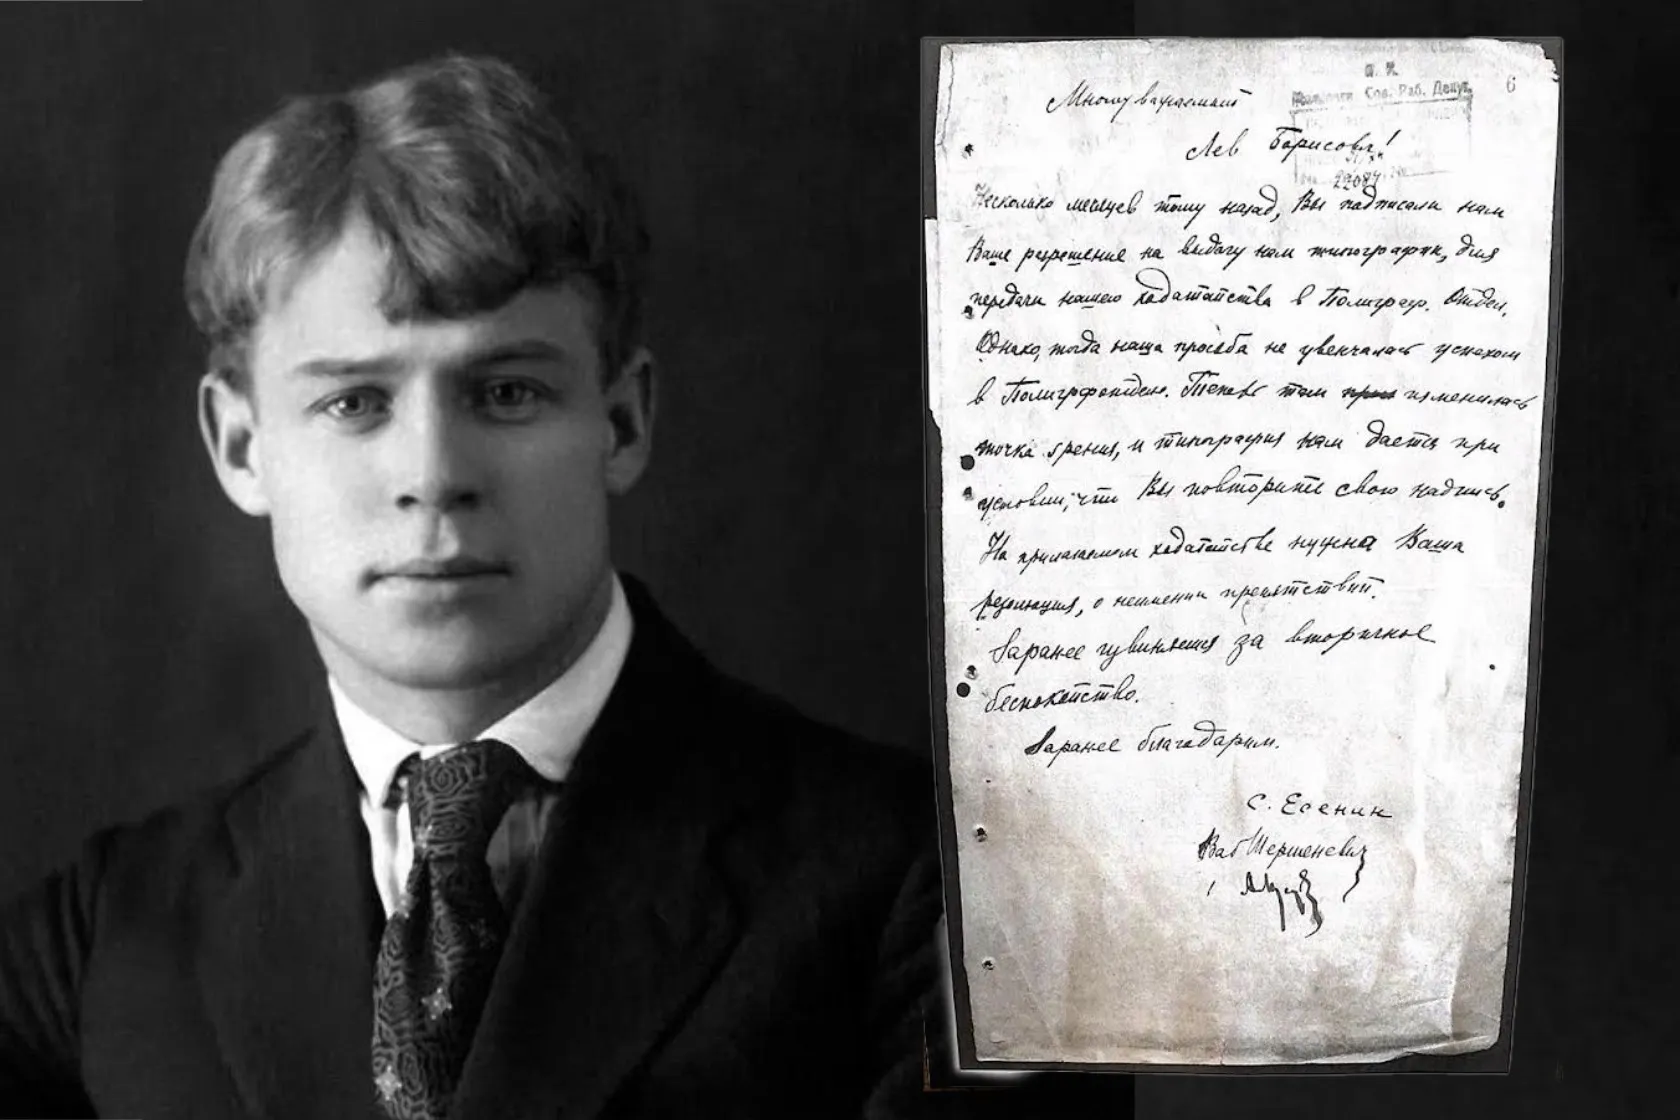 6
Сов. Раб. Депут.
Многоуважаемый
Лев Борисович!
22084
Несколько месяцев тому назад, Вы подписали нам
Ваше разрешение на выдачу нам типографии, для
передачи нашего ходатайства в Полиграф. Отдел,
Однако, тогда наша просьба не увенчалась успехом
в Полиграфотделе. Теперь там изменилась
точка зрения, и типография нам дается при
условии, что Вы повторите свою надпись.
На прилагаемом ходатайстве нужна Ваша
резолюция, о неимении препятствий.
Заранее извиняемся за вторичное
беспокойство.
Заранее благодарим.
С. Есенин
Вад Шершеневич